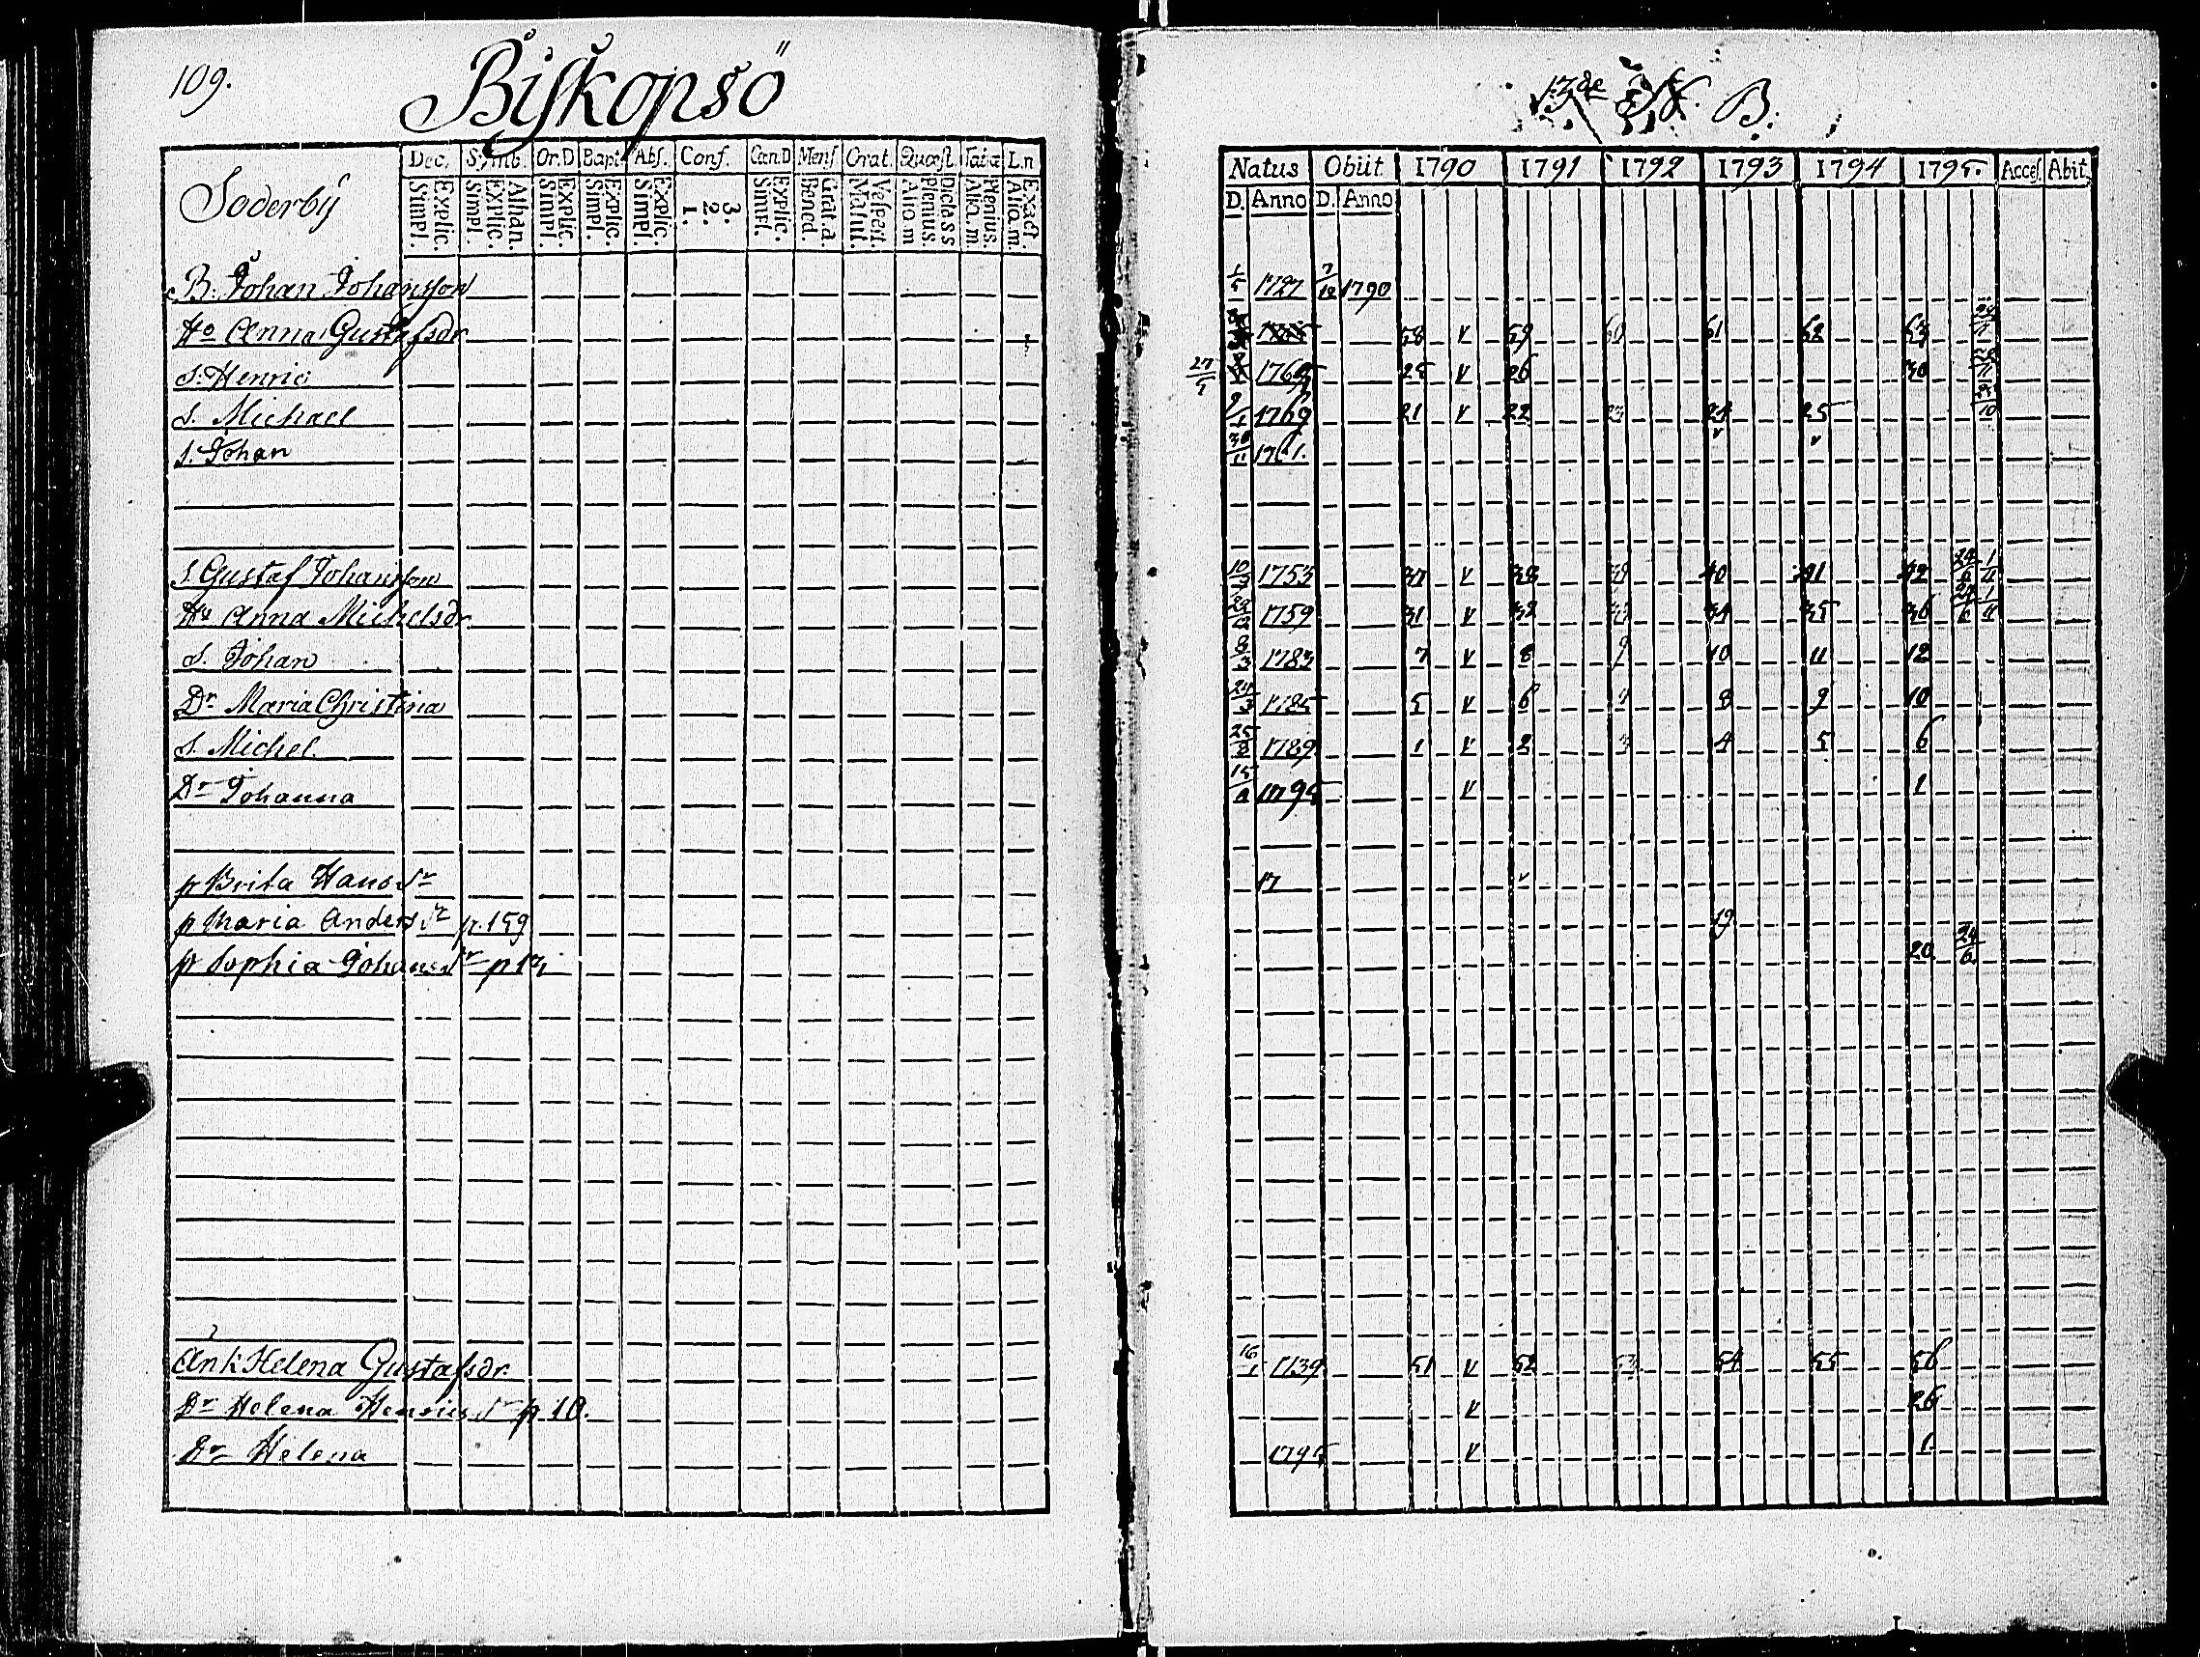 109. Biskopsö
Söderbÿ
Dec. Symb. Or.D Bapt. Abs. Conf. Cæn.D Mens. Orat. Quæst. Tab.æ L.n
Simpl. Explic. Simpl. Explic. Athan. Simpl. Explic. Simpl. Explic. Simpl. Explic. 1. 2. 3. Simpl. Explic. Bened. Grat.a. Matut. Vespert. Alio.m Plenius. Dicta.ss Alia.m. Plenius. Alia.m. Exact.
B. Johan Johansson
Ho Anna Gustafsdr
S. Henric
S. Michael
S. Johan
S. Gustaf Johansson
Hu Anna Michelsdr
S. Johan
Dr Maria Christina
S. Michel.
Dr Johanna
p Brita Hansdr
p Maria Andersdr p. 159
p Sophia Johansdr p
Enk Helena Gustafsdr.
Dr Helena Henricsdr p 10.
Dr Helena
13de B.
Natus Obiit 1790 1791 1792 1793 1794 1795. Acces. Abit.
D. Anno D. Anno
1/5 1727 7/12 1790
58 v 59 60 61 62 63
27/5 176 25 v 26 30
9/1 1769 21 v 22 23 24 25 25/10
30/11 1761. v v
10/3 1753 37 v 38 39 40 41 42 24/6 1/11
1759 31 v 32 33 34 35 36 24/6 1/11
8/3 1783 7 v 8 9 10 11 12
24/3 1785 5 v 6 7 8 9 10
25/8 1789 1 v 2 3 4 5 6
15/8 1795 v 1
17 v
19
20 24/6
16/1 1739 51 v 52 53 54 55 56
v 26
1795 v 1